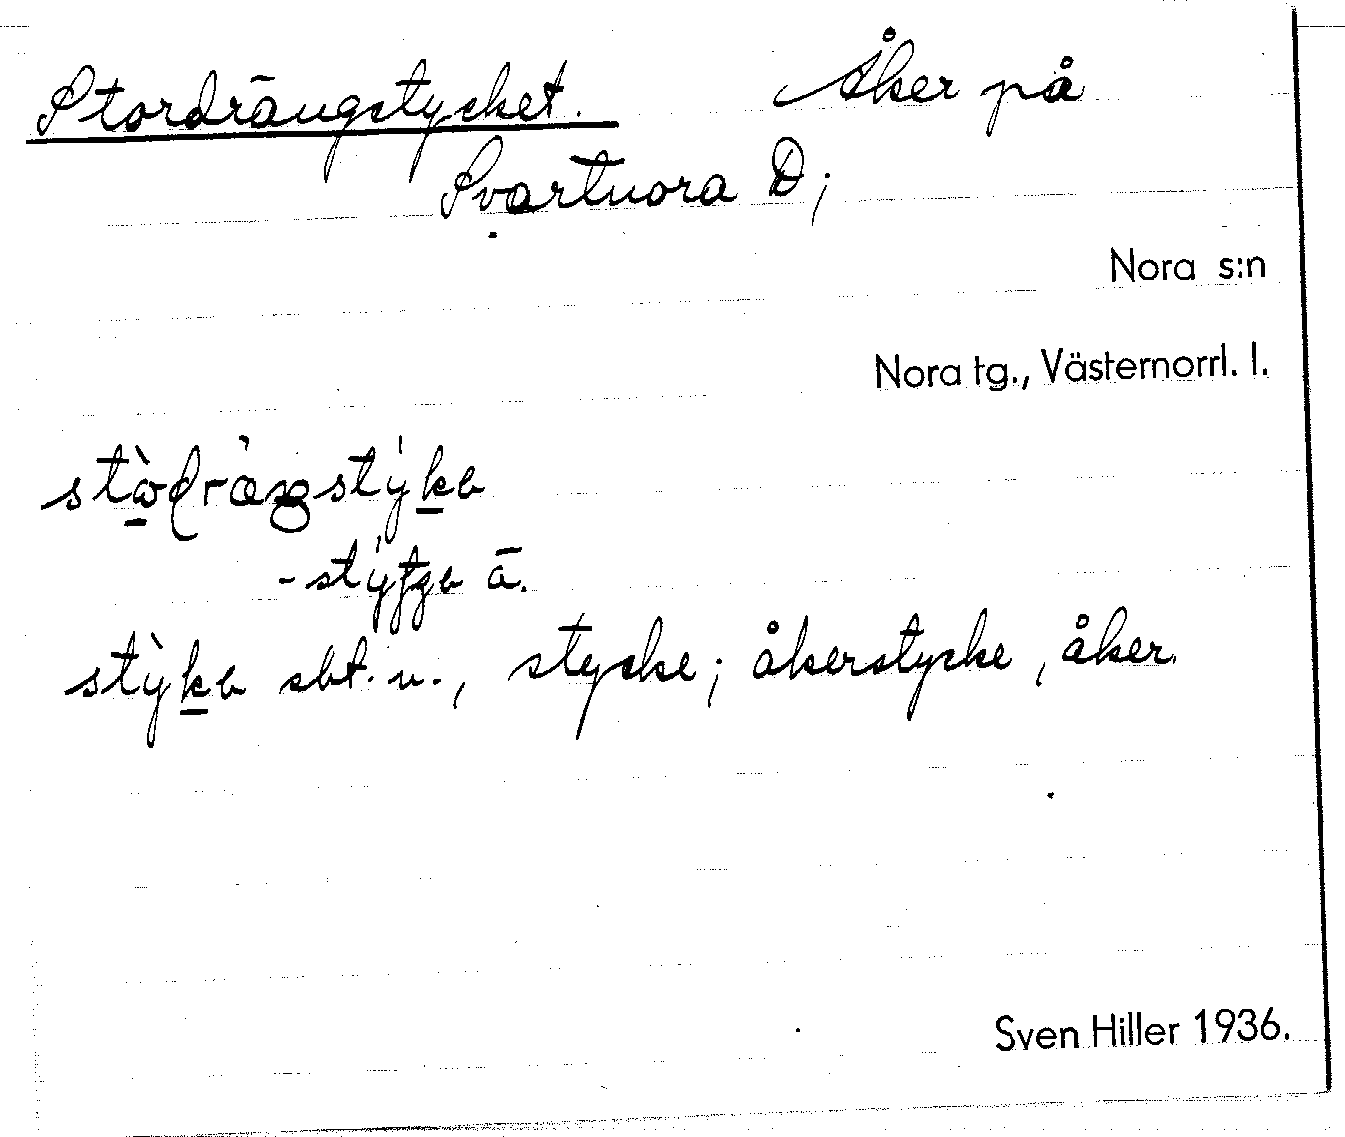 Stordrängstycket. Åker på
Svartnora D;
Nora s:n
Nora tg., Västernorrl. l.
-stýtʃɐ ā.
sbt. n., stycke; åkerstycke, åker.
Sven Hiller 1936.